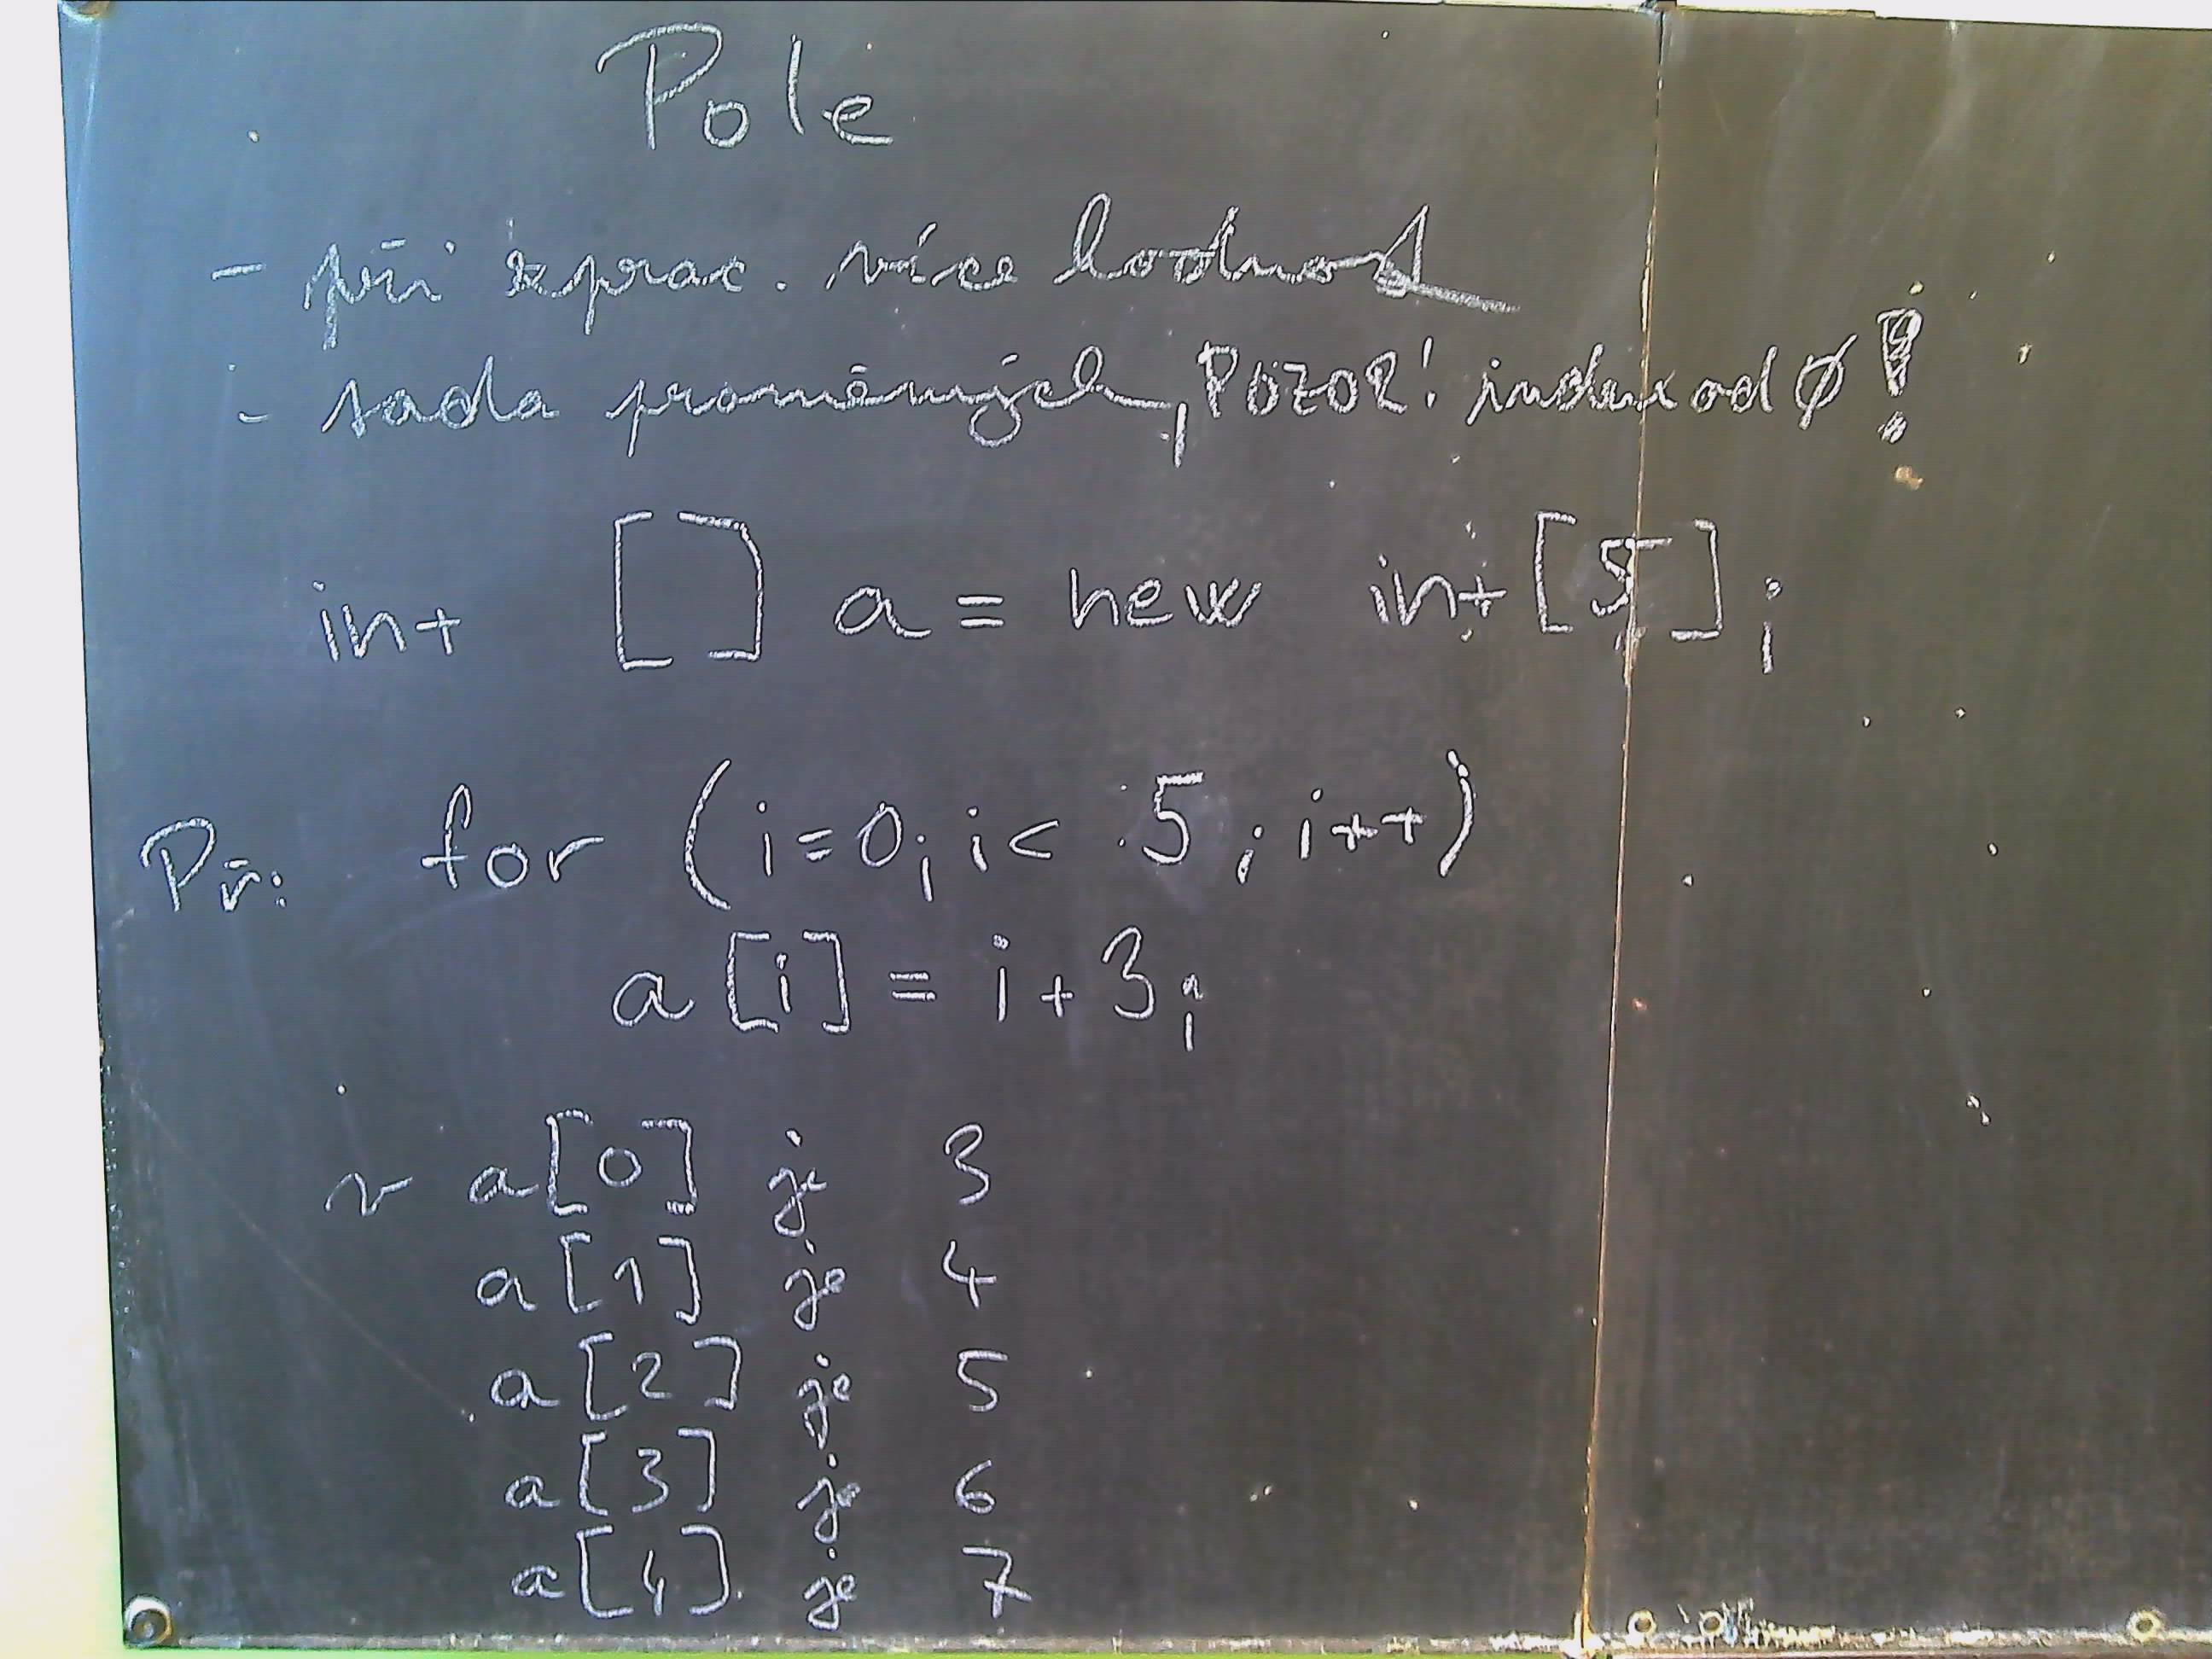 Pole
- při zprac. více hodnot
- sada proměných, POZOR! index od Ø!
int [] a = new int [5];
Př: for (i=0; i< 5; i++)
a [i] = i+3;
v a[0] je 3
a[1] je 4
a[2] je 5
a[3] je 6
a[4] je 7